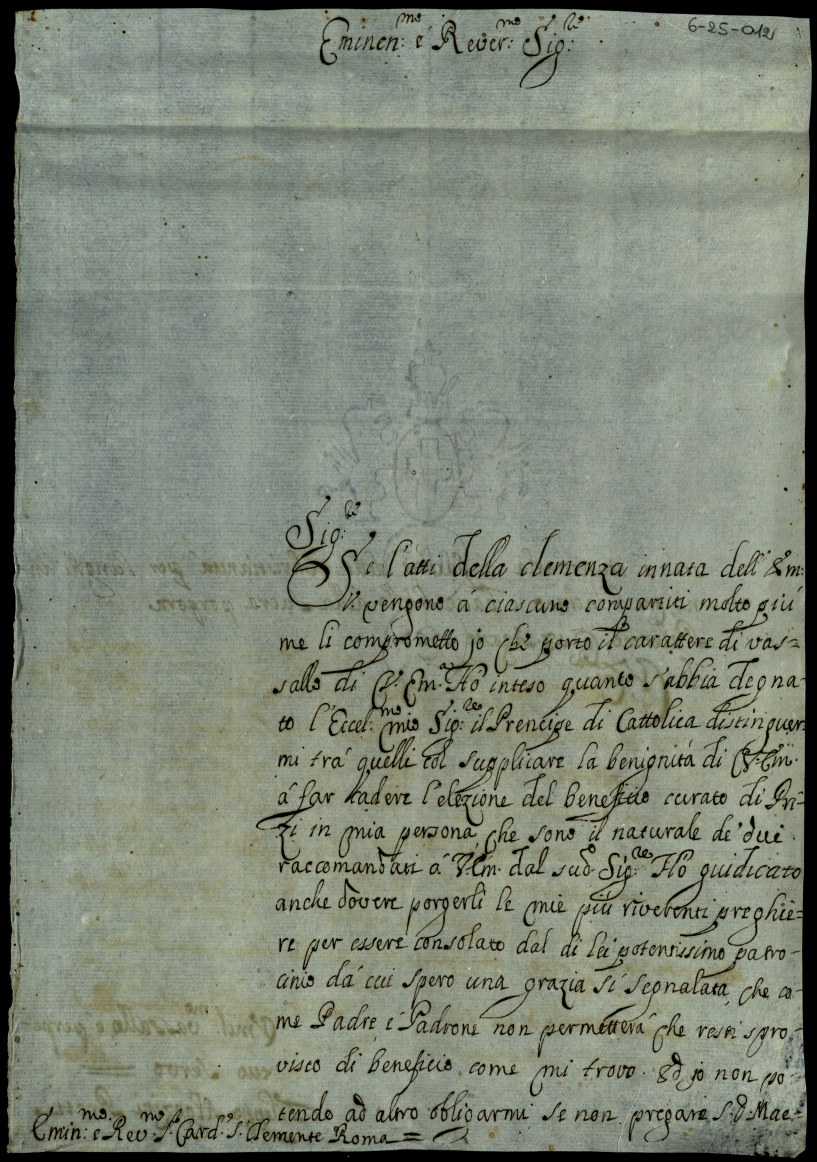 6-25-012
Eminen:mo e Rever:mo Sig:re
Sig:re
Se l'atti della clemenza innata dell'Em:
V. vengono á ciascuno compartiti molto più
me li comprometto jo che porto il carattere di vas=
sallo di V. Em.a Hò inteso quanto s'abbia degna-
to l'Eccel:mo mio Sig:re il Prencipe di Cattolica distinguer
mi trá quelli col supplicare la benignitá di V. Em.
á far cadere l'elezione del beneficio curato di Pri=
zi in mia persona, che sono il naturale de' due
raccomandati á V. Em. dal sud.o Sig:re Hò giudicato
anche dovere porgerli le mie più riverenti preghie=
re per essere consolato dal di lei potentissimo patro-
cinio dá cui spero una grazia sì segnalata, che co-
me Padre é Padrone non permetterá che resti spro-
visto di beneficio come mi trovo. Ed jo non po-
tendo ad altro obligarmi se non pregare S. D. Mae=
Emin:mo e Rev:mo S.r Card.e S. Clemente Roma =